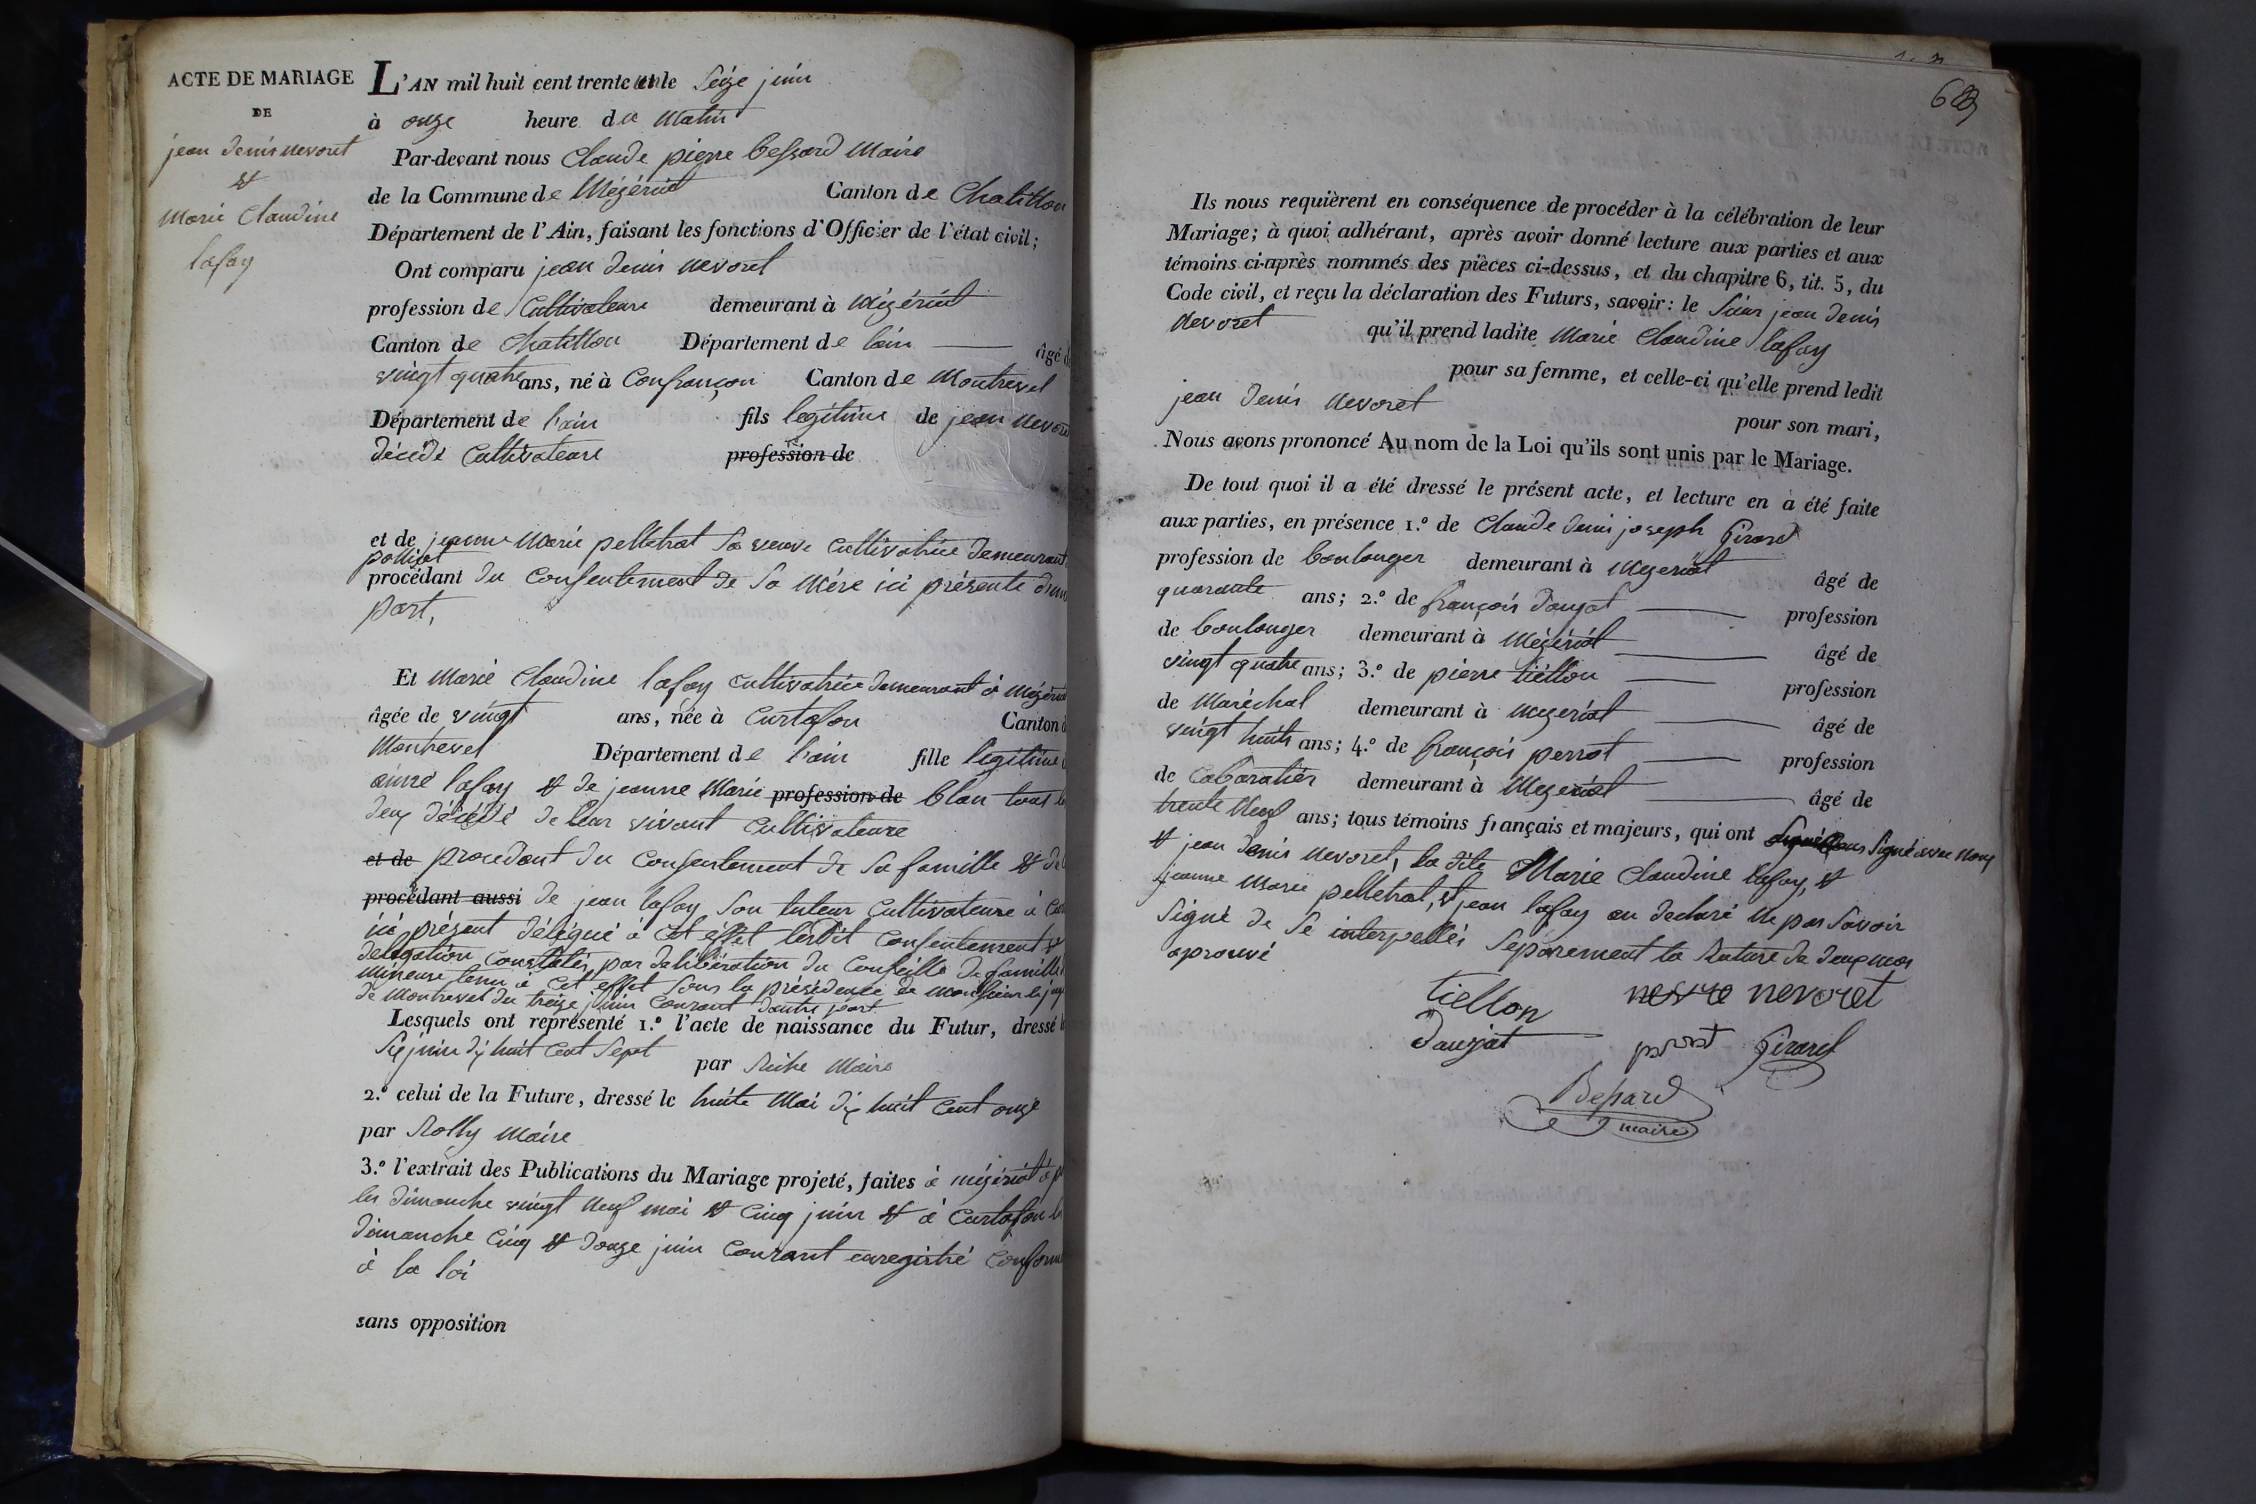 ACTE DE MARIAGE
DE
jean denis nevoret
et
marie Claudine
lafay
L'AN mil huit cent trente un le Seize juin
à onze heure du matin
Par-devant nous Claude pierre bessard maire
de la Commune de Mézériat Canton de Chatillon
Département de l'Ain, faisant les fonctions d'Officier de l'état civil;
Ont comparu jean denis nevoret
profession de Cultivateure demeurant à mézériat
Canton de Chatillon Département de lain âgé
vingt quatre ans, né à Confrançon Canton de Montrevel
Département de l'ain fils legitime de jean nevoret
décédé Cultivateure profession de
et de jeanne marie pelletrat sa veuve Cultivatrice demeurant
polliat
procédant du Consentement de Sa mère ici présente d'une
part,
Et Marie Claudine lafay Cultivatrice demeurant à mézériat
âgée de vingt ans, née à Curtafon Canton
Montrevel Département de l'ain fille legitime
aimé lafay et de jeanne Marie profession de blan tous
deux décédé de leur vivant Cultivateure
et de procedant du Consentement de Sa famille et de
procédant aussi de jean lafay son tuteur Cultivateure à
ici présent délégué à cet éffet lesdit Consentement et
delegation Constatés par delibération du Conseille de famille
mineure tenu à cet effet sous la présidence de monsieur le juge
de Montrevel du treize juin Courant dautre part
Lesquels ont représenté 1.º l'acte de naissance du Futur, dressé
Six juin dix huit Cent Sept par Maire
2.º celui de la Future, dressé le huite Mai dix huit Cent onze
par Rolly Maire
3.º l'extrait des Publications du Mariage projeté, faites à mézériat
les dimanche vingt neuf mai et Cinq juin et à Curtafon
dimanche Cinq et douze juin Courant enregistré Conforme
à la loi
sans opposition
Ils nous requièrent en conséquence de procéder à la célébration de leur
Mariage; à quoi adhérant, après avoir donné lecture aux parties et aux
témoins ci-après nommés des pièces ci-dessus, et du chapitre 6, tit. 5, du
Code civil, et reçu la déclaration des Futurs, savoir: le Sieur jean denis
nevoret qu'il prend ladite Marie Claudine lafay
pour sa femme, et celle-ci qu'elle prend ledit
jean denis nevoret
pour son mari,
Nous avons prononcé Au nom de la Loi qu'ils sont unis par le Mariage.
De tout quoi il a été dressé le présent acte, et lecture en a été faite
aux parties, en présence 1.º de Claude denis joseph Girard
profession de boulanger demeurant à mezeriat âgé de
quarante ans; 2.º de françois daujat profession
de boulanger demeurant à mézériat âgé de
vingt quatre ans; 3.º de pierre tiellon profession
de Maréchal demeurant à mezeriat âgé de
vingt huits ans; 4.º de françois perrat profession
de Cabaratiér demeurant à Mezeriat âgé de
trente Neuf ans; tous témoins français et majeurs, qui ont Signé avec nous
et jean denis nevoret, la dite Marie Claudine lafay, et
jeanne Marie pelletrat, et jean lafay on declaré ne pas Savoir
Signé de Se interpellés Séparement la Rature de deux mos
aprouvé
tiellon nevre nevoret
Daujat perrat Girard
Bessard
maire